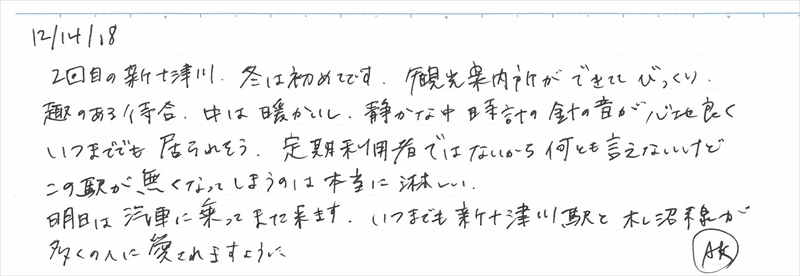 12/14/18
2回目の新十津川. 冬は初めてです. 観光案内所ができてて びっくり.
趣のある待合. 中は暖かいし. 静かな中 時計の針の音が心地良く
いつまででも 居られそう. 定期利用者ではないから 何とも言えないけど
この駅が無くなってしまうのは本当に淋しい.
明日は汽車に乗ってまた来ます. いつまでも新十津川駅と札沼線が
多くの人に愛されますように
AK